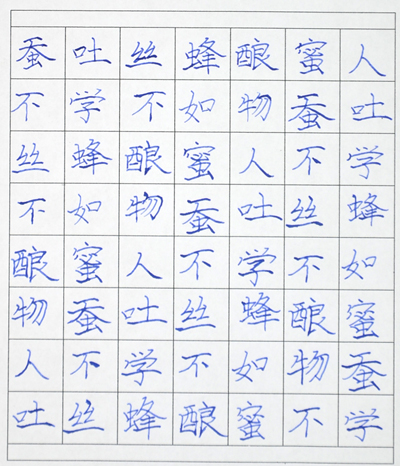 蚕吐丝蜂酿蜜人
不学不如物蚕吐
丝蜂酿蜜人不学
不如物蚕吐丝蜂
酿蜜人不学不如
物蚕吐丝蜂酿蜜
人不学不如物蚕
吐丝蜂酿蜜不学